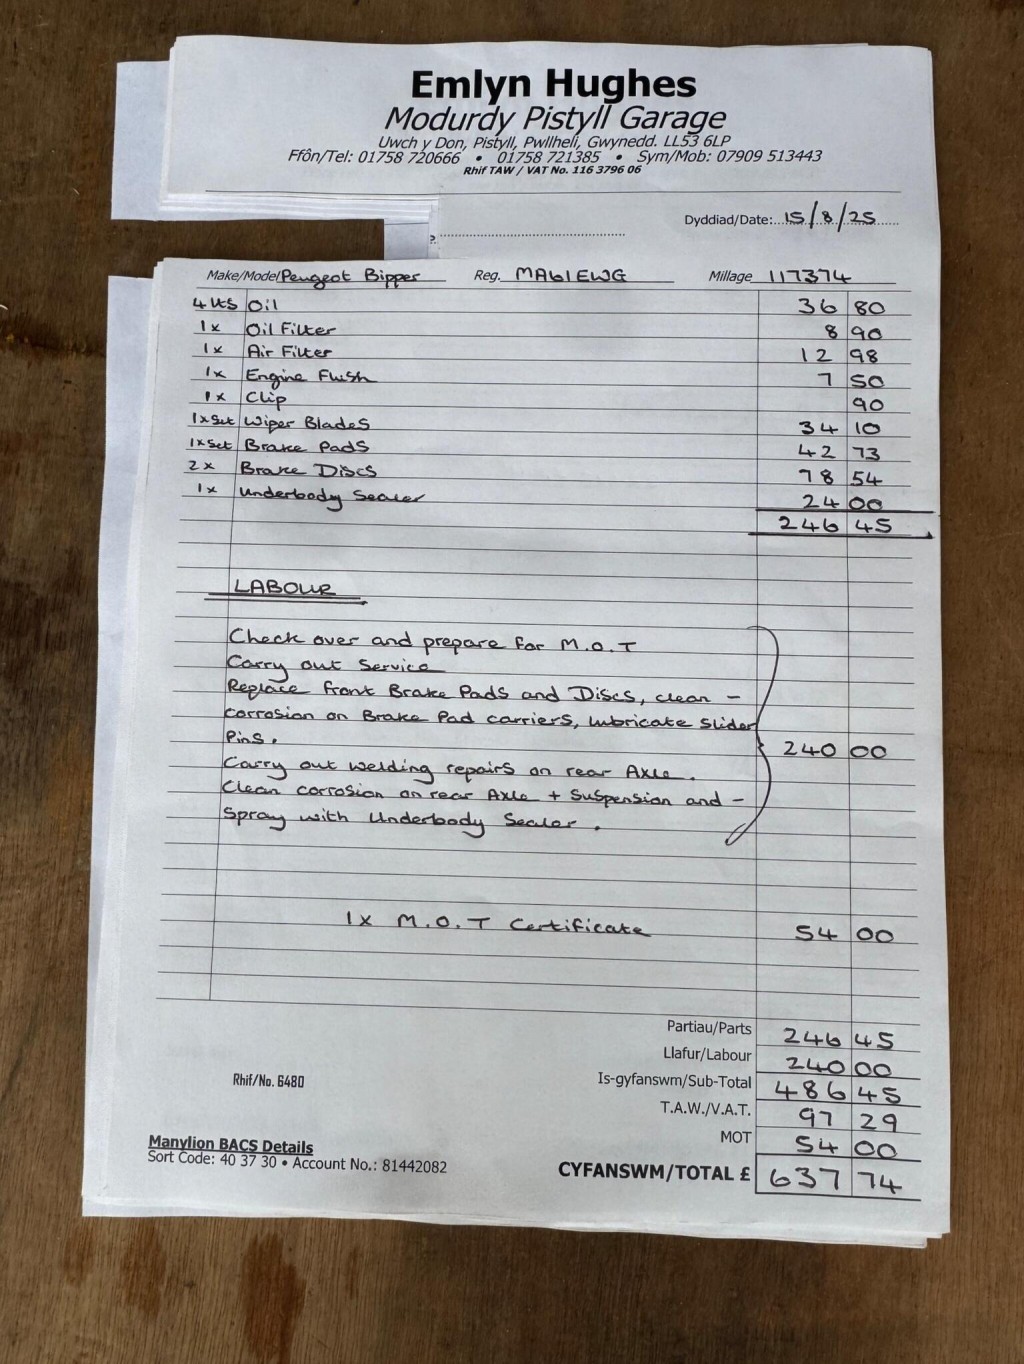 Emlyn Hughes
Modurdy Pistyll Garage
Uwch y Don, Pistyll, Pwllheli, Gwynedd. LL53 6LP
Ffôn/Tel: 01758 720666 • 01758 721385 • Sym/Mob: 07909 513443
Rhif TAW / VAT No. 116 3796 06
Dyddiad/Date: 15/8/25
Make/Model Peugeot Bipper Reg. MA61EWG Millage 117374
4 Lts Oil 36 80
1x Oil Filter 8 90
1x Air Filter 12 98
1x Engine Flush 7 50
1x Clip 90
1x Set Wiper Blades 34 10
1x Set Brake Pads 42 73
2x Brake Discs 78 54
1x Underbody Sealer 24 00
246 45
LABOUR
Check over and prepare for M.O.T
Carry out Service
Replace front Brake Pads and Discs, clean -
corrosion on Brake Pad carriers, lubricate slider
Pins. 240 00
Carry out welding repairs on rear Axle.
Clean corrosion on rear Axle + Suspension and -
Spray with Underbody Sealer.
1x M.O.T Certificate 54 00
Partiau/Parts 246 45
Llafur/Labour 240 00
Is-gyfanswm/Sub-Total 486 45
T.A.W./V.A.T. 97 29
MOT 54 00
CYFANSWM/TOTAL £ 637 74
Rhif/No. 6480
Manylion BACS Details
Sort Code: 40 37 30 • Account No.: 81442082